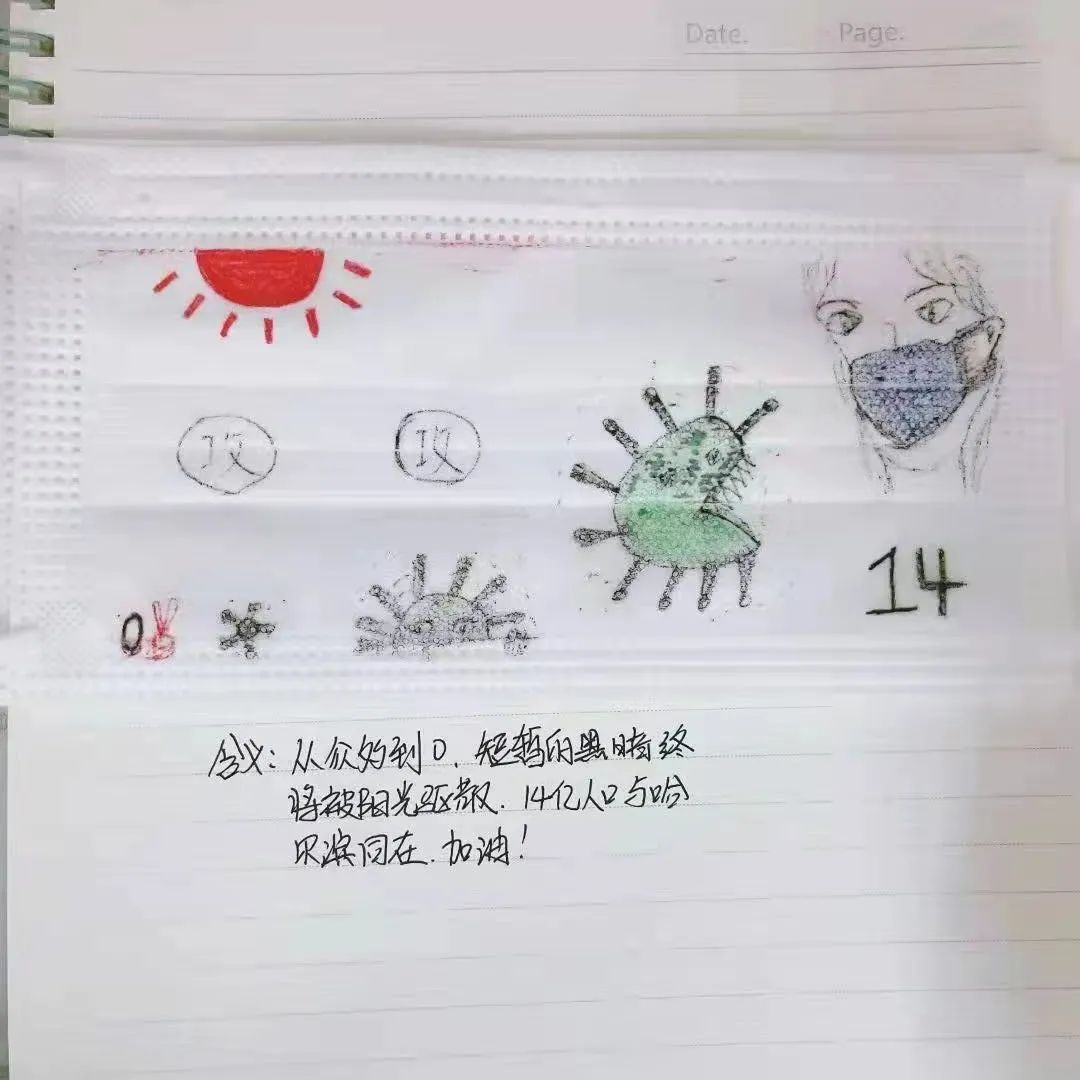 Date. Page.
攻 攻
14
0
含义：从众多到0，短暂的黑暗终
将被阳光驱散，14亿人口与哈
尔滨同在，加油！